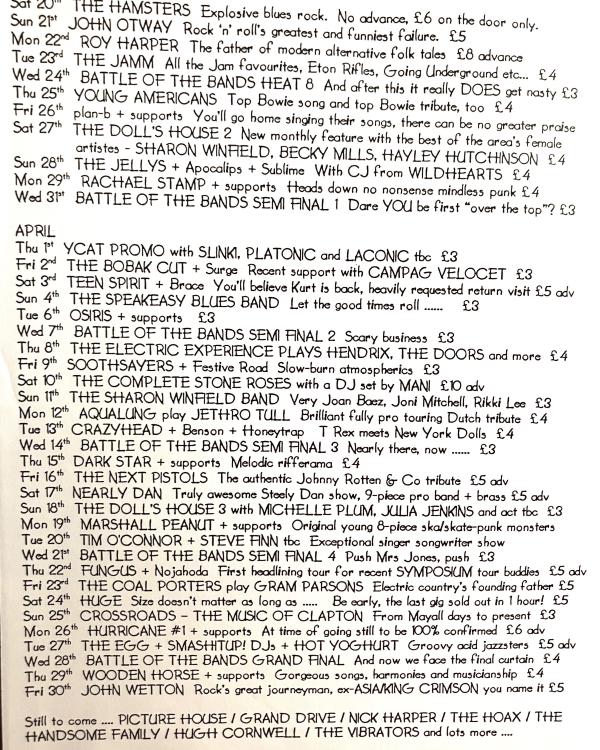 Sat 20th THE HAMSTERS Explosive blues rock. No advance, £6 on the door only.
Sun 21st JOHN OTWAY Rock 'n' roll's greatest and funniest failure. £5
Mon 22nd ROY HARPER The father of modern alternative folk tales £8 advance
Tue 23rd THE JAMM All the Jam favourites, Eton Rifles, Going Underground etc... £4
Wed 24th BATTLE OF THE BANDS HEAT 8 And after this it really DOES get nasty £3
Thu 25th YOUNG AMERICANS Top Bowie song and top Bowie tribute, too £4
Fri 26th plan-b + supports You'll go home singing their songs, there can be no greater praise
Sat 27th THE DOLL'S HOUSE 2 New monthly feature with the best of the area's female
artistes - SHARON WINFIELD, BECKY MILLS, HAYLEY HUTCHINSON £4
Sun 28th THE JELLYS + Apocalips + Sublime With CJ from WILDHEARTS £4
Mon 29th RACHAEL STAMP + supports Heads down no nonsense mindless punk £4
Wed 31st BATTLE OF THE BANDS SEMI FINAL 1 Dare YOU be first "over the top"? £3
APRIL
Thu 1st YCAT PROMO with SLINKI, PLATONIC and LACONIC tbc £3
Fri 2nd THE BOBAK CUT + Surge Recent support with CAMPAG VELOCET £3
Sat 3rd TEEN SPIRIT + Brace You'll believe Kurt is back, heavily requested return visit £5 adv
Sun 4th THE SPEAKEASY BLUES BAND Let the good times roll ...... £3
Tue 6th OSIRIS + supports £3
Wed 7th BATTLE OF THE BANDS SEMI FINAL 2 Scary business £3
Thu 8th THE ELECTRIC EXPERIENCE PLAYS HENDRIX, THE DOORS and more £4
Fri 9th SOOTHSAYERS + Festive Road Slow-burn atmospherics £3
Sat 10th THE COMPLETE STONE ROSES with a DJ set by MANI £10 adv
Sun 11th THE SHARON WINFIELD BAND Very Joan Baez, Joni Mitchell, Rikki Lee £3
Mon 12th AQUALUNG play JETHRO TULL Brilliant fully pro touring Dutch tribute £4
Tue 13th CRAZYHEAD + Benson + Honeytrap T Rex meets New York Dolls £4
Wed 14th BATTLE OF THE BANDS SEMI FINAL 3 Nearly there, now ...... £3
Thu 15th DARK STAR + supports Melodic rifferama £4
Fri 16th THE NEXT PISTOLS The authentic Johnny Rotten & Co tribute £5 adv
Sat 17th NEARLY DAN Truly awesome Steely Dan show, 9-piece pro band + brass £5 adv
Sun 18th THE DOLL'S HOUSE 3 with MICHELLE PLUM, JULIA JENKINS and act tbc £3
Mon 19th MARSHALL PEANUT + supports Original young 8-piece ska/skate-punk monsters
Tue 20th TIM O'CONNOR + STEVE FINN tbc Exceptional singer songwriter show
Wed 21st BATTLE OF THE BANDS SEMI FINAL 4 Push Mrs Jones, push £3
Thu 22nd FUNGUS + Nojahoda First headlining tour for recent SYMPOSIUM tour buddies £5 adv
Fri 23rd THE COAL PORTERS play GRAM PARSONS Electric country's founding father £5
Sat 24th HUGE Size doesn't matter as long as ..... Be early, the last gig sold out in 1 hour! £5
Sun 25th CROSSROADS - THE MUSIC OF CLAPTON From Mayall days to present £3
Mon 26th HURRICANE #1 + supports At time of going still to be 100% confirmed £6 adv
Tue 27th THE EGG + SMASHITUP! DJs + HOT YOGHURT Groovy acid jazzsters £5 adv
Wed 28th BATTLE OF THE BANDS GRAND FINAL And now we face the final curtain £4
Thu 29th WOODEN HORSE + supports Gorgeous songs, harmonies and musicianship £4
Fri 30th JOHN WETTON Rock's great journeyman, ex-ASIA/KING CRIMSON you name it £5
Still to come .... PICTURE HOUSE / GRAND DRIVE / NICK HARPER / THE HOAX / THE
HANDSOME FAMILY / HUGH CORNWELL / THE VIBRATORS and lots more ....